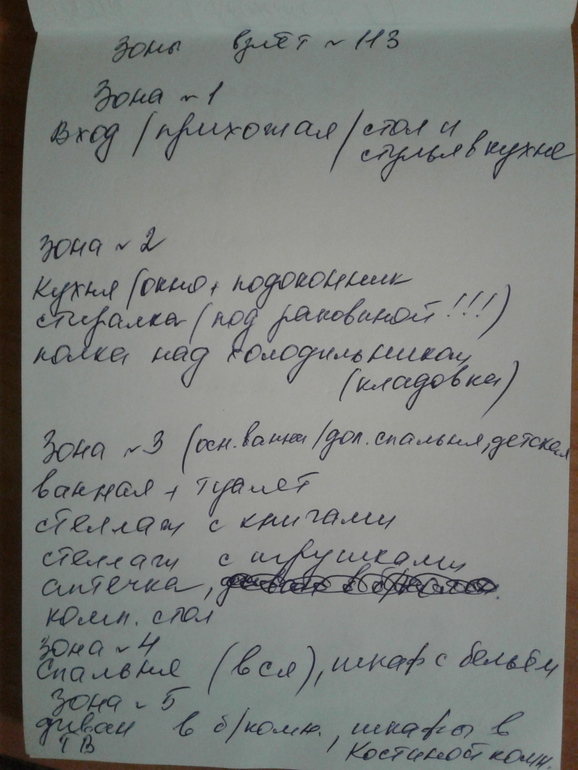 Зоны взлёт ~ 113
Зона ~ 1
Вход / прихожая / стол и
стулья в кухне
Зона ~ 2
Кухня / окно + подоконник
стиралка (под раковиной!!!)
полка над холодильником
(кладовка)
Зона ~ 3 (осн. ванна / доп. спальня, детская
ванная + туалет
стеллаж с книгами
стеллаж с игрушками
аптечка,
комп. стол
Зона ~ 4
Спальня (вся), шкаф с бельём
Зона ~ 5
диван в б/комн., шкафы в
ТВ Костиной комн.